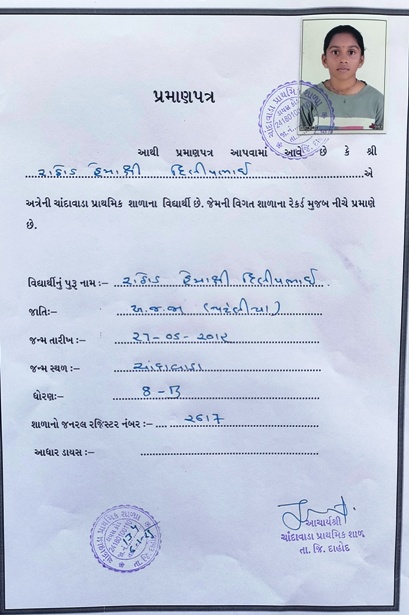 પ્રમાણપત્ર
આથી પ્રમાણપત્ર આપવામાં આવે છે કે શ્રી
રાઠોડ હેમાક્ષી દિલીપભાઈ એ
અત્રેની ચાંદાવાડા પ્રાથમિક શાળાના વિદ્યાર્થી છે. જેમની વિગત શાળાના રેકર્ડ મુજબ નીચે પ્રમાણે
છે.
વિદ્યાર્થીનું પુરૂ નામ :– રાઠોડ હેમાક્ષી દિલીપભાઈ
જાતિ:– અ.જ.જા (પટેલીયા)
જન્મ તારીખ :– ૨૧–૦૬–૨૦૧૨
જન્મ સ્થળ :– ચાંદાવાડા
ધોરણ:– 8 – B
શાળાનો જનરલ રજિસ્ટર નંબર :– ૨૬૧૭
આધાર ડાયસ :–
આચાર્યશ્રી
ચાંદાવાડા પ્રાથમિક શાળ
તા. જિ. દાહોદ